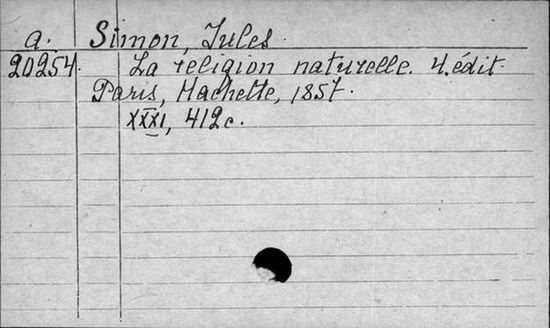 a. Simon, Jules.
20254. La religion naturelle. 4. édit
Paris, Hachette, 1857.
XXXI, 412 c.